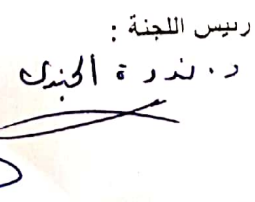 رئيس اللجنة :
د. ندرة الجندي